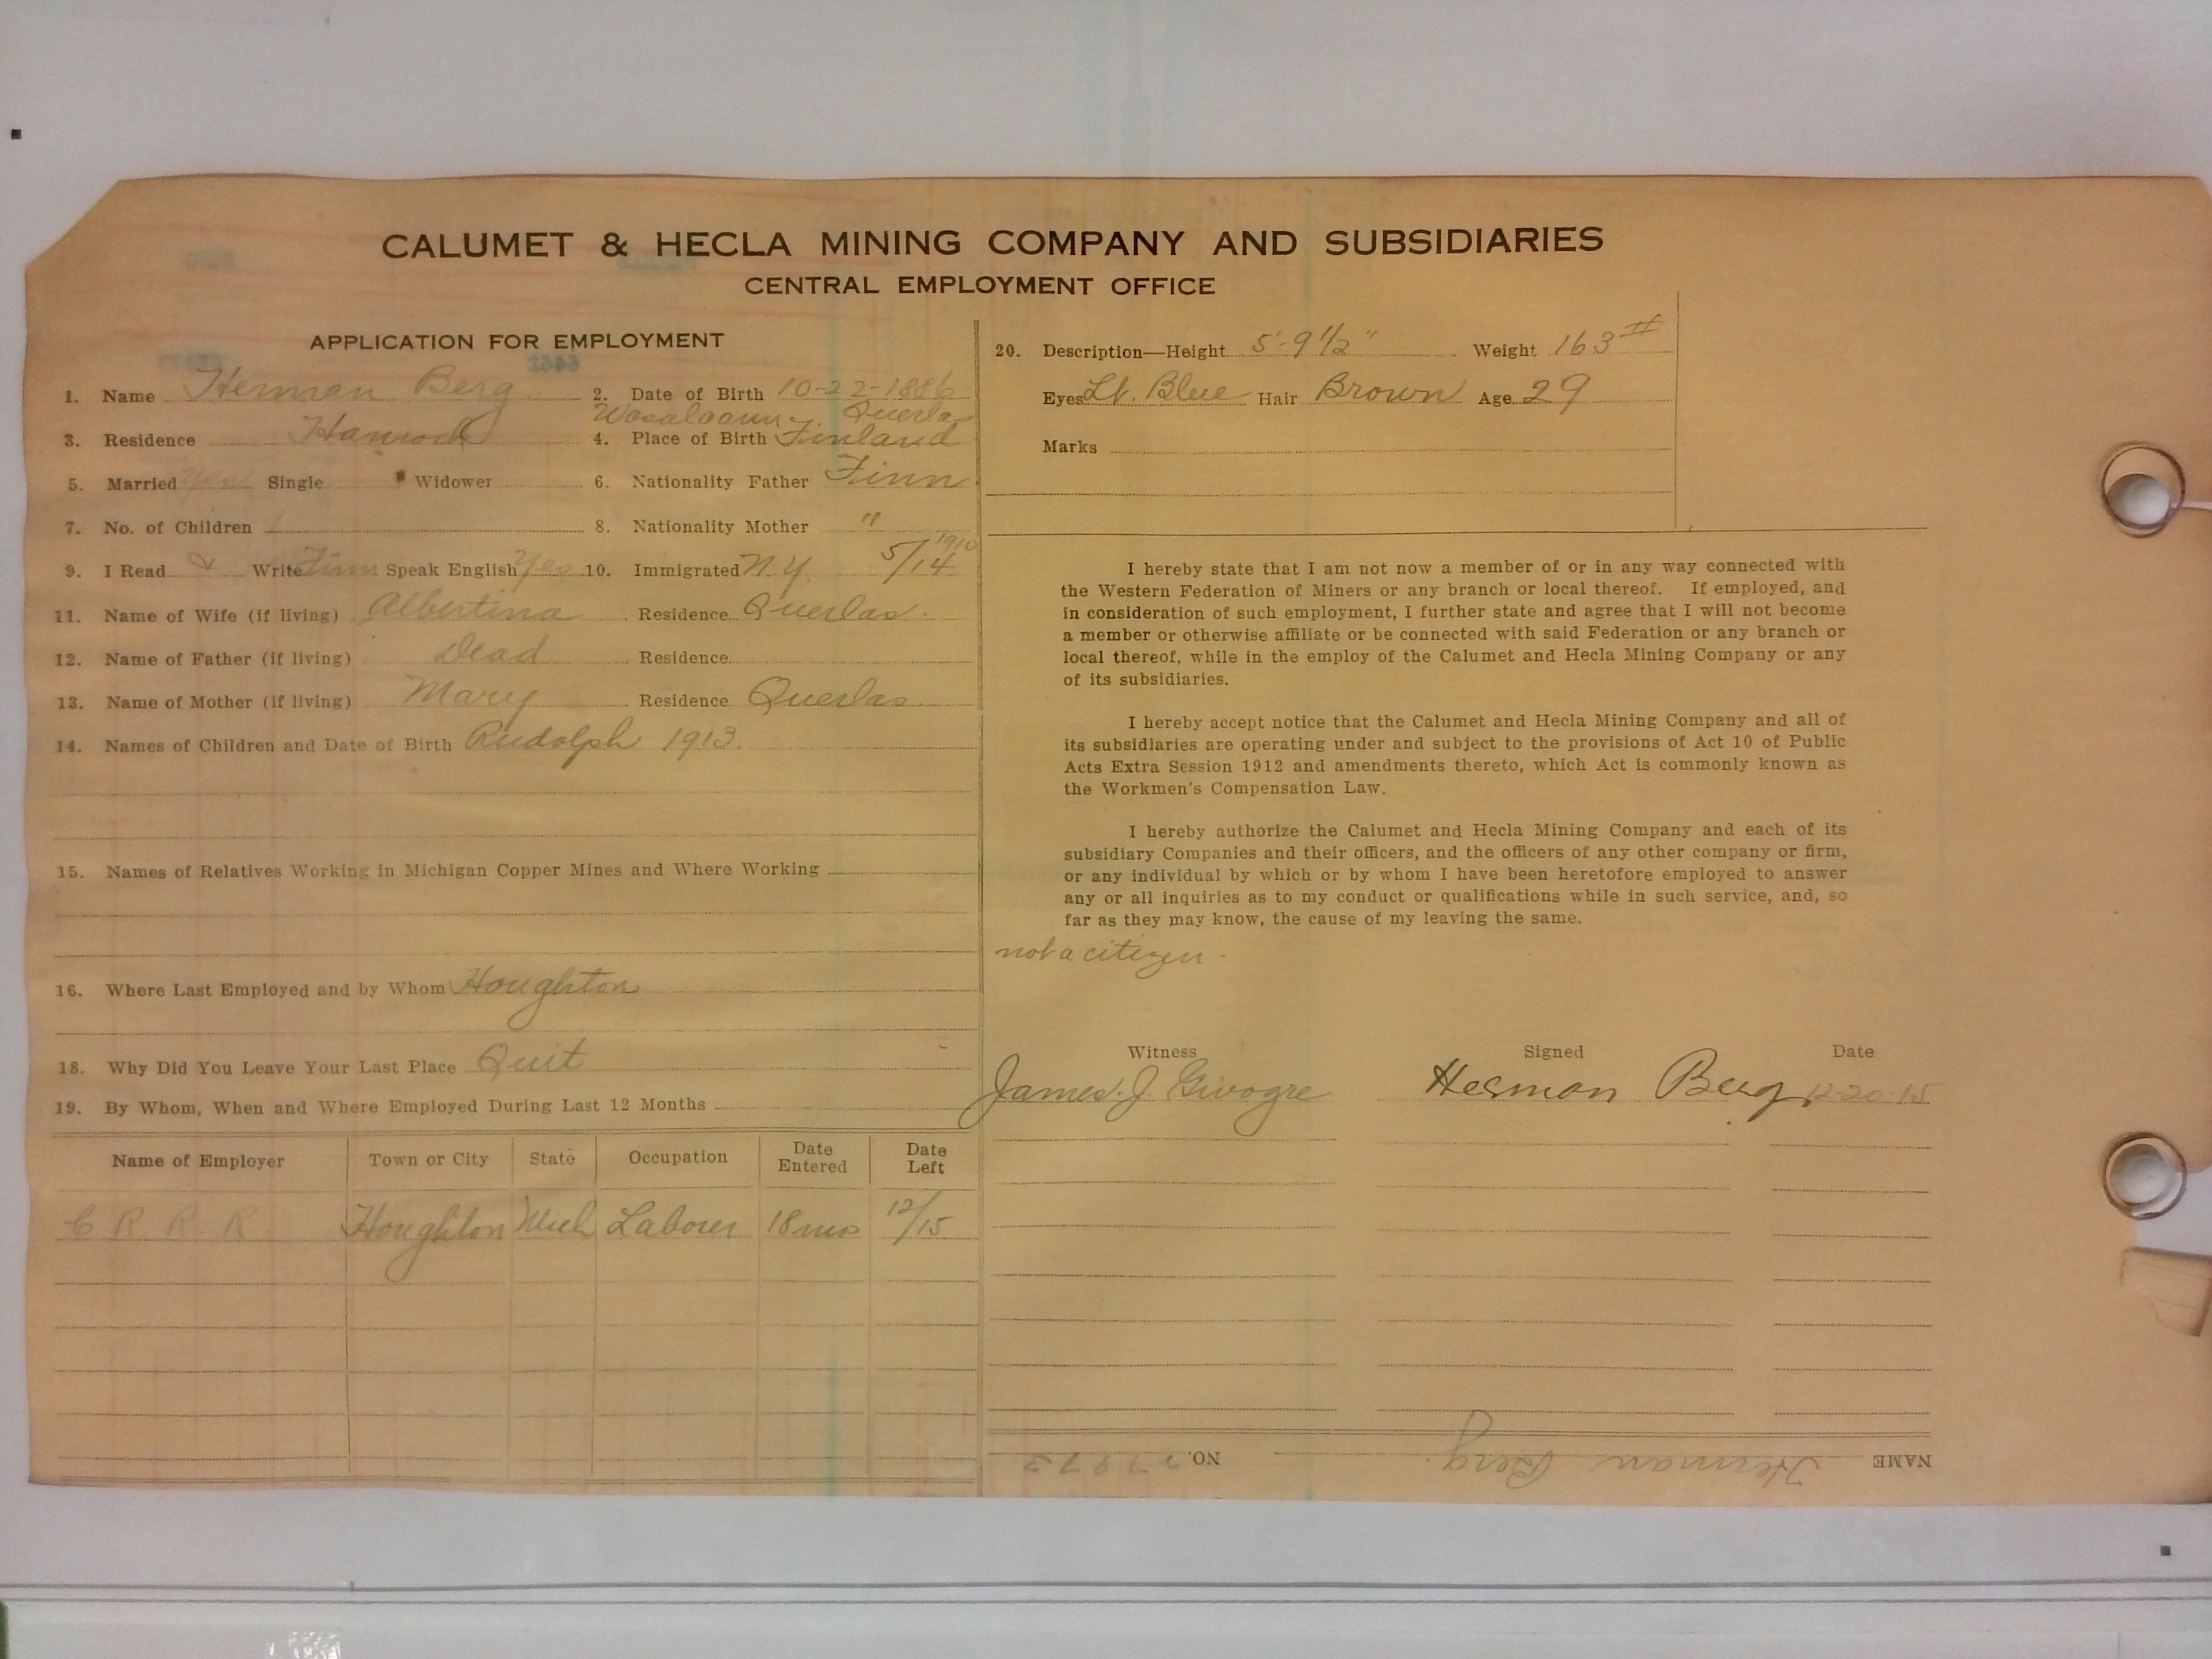 CALUMET & HECLA MINING COMPANY AND SUBSIDIARIES
CENTRAL EMPLOYMENT OFFICE
APPLICATION FOR EMPLOYMENT
1. Name Herman Berg 2. Date of Birth 10-22-1886
3. Residence Hancock 4. Place of Birth Finland
5. Married Yes Single Widower 6. Nationality Father Finn
7. No. of Children 1 8. Nationality Mother "
9. I Read & Write Finn Speak English Yes 10. Immigrated N.Y. 5/14 1910
11. Name of Wife (if living) Albertina Residence
12. Name of Father (if living) Dead Residence
13. Name of Mother (if living) Mary Residence
14. Names of Children and Date of Birth Rudolph 1913.
15. Names of Relatives Working in Michigan Copper Mines and Where Working
16. Where Last Employed and by Whom Houghton
18. Why Did You Leave Your Last Place Quit
19. By Whom, When and Where Employed During Last 12 Months
Name of Employer Town or City State Occupation Date Entered Date Left
C R R R Houghton Mich Laborer 18 mos 12/15
20. Description—Height 5'-9 1/2" Weight 163#
Eyes Lt. Blue Hair Brown Age 29
Marks
I hereby state that I am not now a member of or in any way connected with
the Western Federation of Miners or any branch or local thereof. If employed, and
in consideration of such employment, I further state and agree that I will not become
a member or otherwise affiliate or be connected with said Federation or any branch or
local thereof, while in the employ of the Calumet and Hecla Mining Company or any
of its subsidiaries.
I hereby accept notice that the Calumet and Hecla Mining Company and all of
its subsidiaries are operating under and subject to the provisions of Act 10 of Public
Acts Extra Session 1912 and amendments thereto, which Act is commonly known as
the Workmen's Compensation Law.
I hereby authorize the Calumet and Hecla Mining Company and each of its
subsidiary Companies and their officers, and the officers of any other company or firm,
or any individual by which or by whom I have been heretofore employed to answer
any or all inquiries as to my conduct or qualifications while in such service, and, so
far as they may know, the cause of my leaving the same.
not a citizen -
Witness Signed Date
James J. Givogre Herman Berg 12-20-15
NAME Herman Berg. NO.